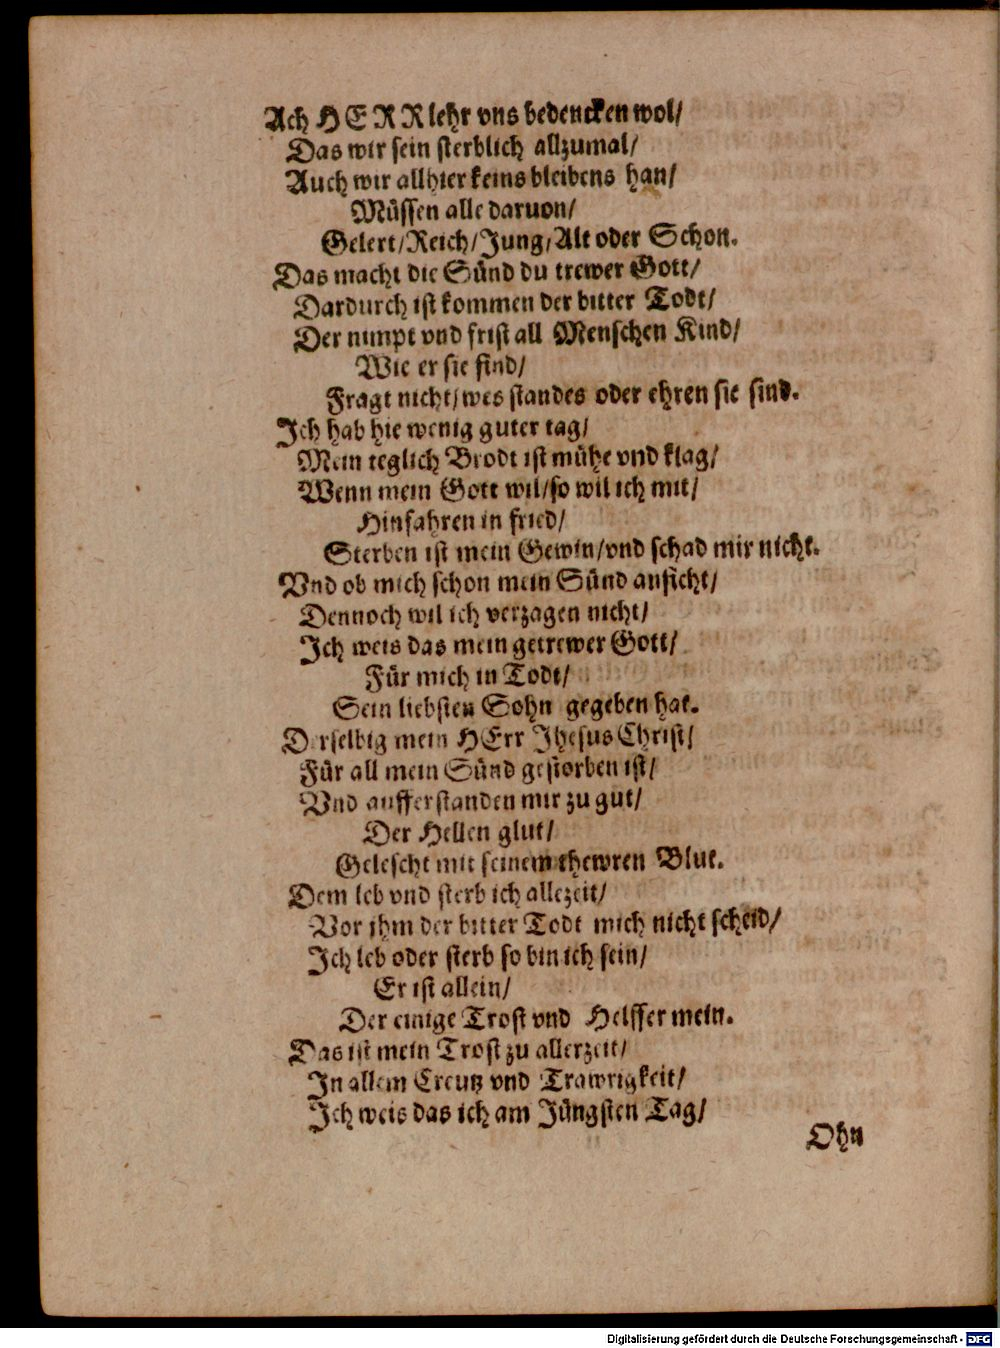 Ach HERR lehr vns bedencken wol/
Das wir sein sterblich allzumal/
Auch wir allhier keins bleibens han/
Müssen alle daruon/
Gelert/Reich/Jung/Alt oder Schon.
Das macht die Sünd du trewer Gott/
Dardurch ist kommen der bitter Todt/
Der nimpt vnd frist all Menschen Kind/
Wie er sie find/
Fragt nicht/wes standes oder ehren sie sind.
Ich hab hie wenig guter tag/
Mein teglich Brodt ist mühe vnd klag/
Wenn mein Gott wil/so wil ich mit/
Hinfahren in fried/
Sterben ist mein Gewin/vnd schad mir nicht.
Vnd ob mich schon mein Sünd anficht/
Dennoch wil ich verzagen nicht/
Ich weis das mein getrewer Gott/
Für mich in Todt/
Sein liebsten Sohn gegeben hat.
Derselbig mein HErr Jhesus Christ/
Für all mein Sünd gestorben ist/
Vnd aufferstanden mir zu gut/
Der Hellen glut/
Gelescht mit seinem thewren Blut.
Dem leb vnd sterb ich allezeit/
Vor ihm der bitter Todt mich nicht scheid/
Ich leb oder sterb so bin ich sein/
Er ist allein/
Der einige Trost vnd Helffer mein.
Das ist mein Trost zu allerzeit/
In allem Creutz vnd Trawrigkeit/
Ich weis das ich am Jüngsten Tag/
Ohn
Digitalisierung gefördert durch die Deutsche Forschungsgemeinschaft - DFG